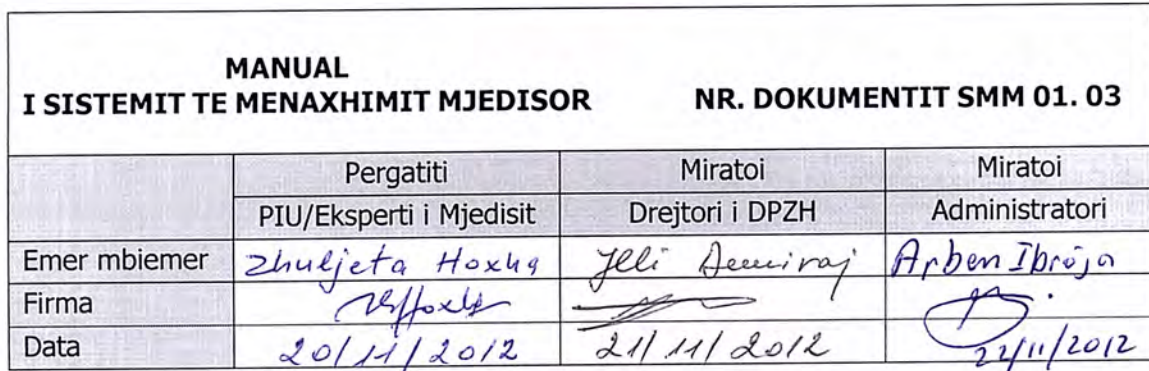 MANUAL
I SISTEMIT TE MENAXHIMIT MJEDISOR NR. DOKUMENTIT SMM 01. 03
Pergatiti Miratoi Miratoi
PIU/Eksperti i Mjedisit Drejtori i DPZH Administratori
Emer mbiemer Zhuljeta Hoxha Demiraj Arben Ibroja
Firma
Data 20/11/2012 21/11/2012 22/11/2012